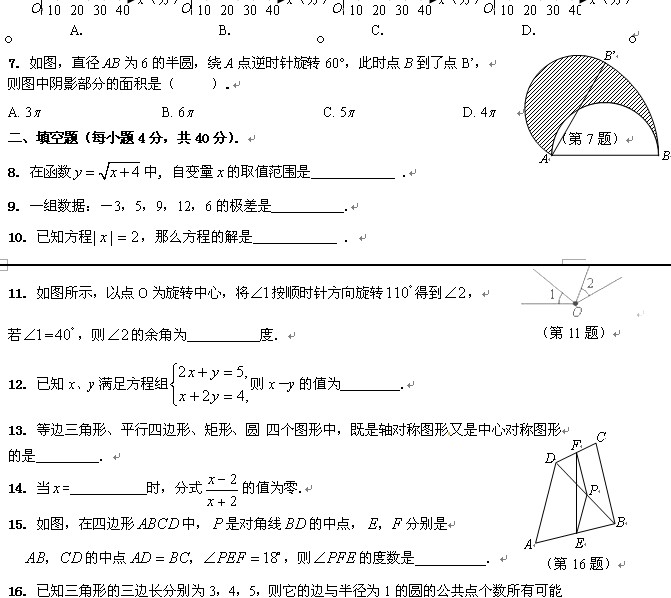 O 10 20 30 40 O 10 20 30 40 O 10 20 30 40 O 10 20 30 40
A. B. C. D.
7. 如图，直径AB为6的半圆，绕A点逆时针旋转60°，此时点B到了点B’，
则图中阴影部分的面积是（ ）.
A. 3π B. 6π C. 5π D. 4π
B’
A B
（第7题）
二、填空题（每小题4分，共40分）.
8. 在函数y=√(x+4)中, 自变量x的取值范围是____________ .
9. 一组数据：－3，5，9，12，6的极差是__________.
10. 已知方程|x|=2，那么方程的解是____________ .
11. 如图所示，以点O为旋转中心，将∠1按顺时针方向旋转110°得到∠2，
若∠1=40°，则∠2的余角为__________度.
1 2
O
（第11题）
12. 已知x、y满足方程组{2x+y=5, x+2y=4, 则x－y的值为________.
13. 等边三角形、平行四边形、矩形、圆 四个图形中，既是轴对称图形又是中心对称图形
的是_________.
14. 当x=___________时，分式(x-2)/(x+2)的值为零.
15. 如图，在四边形ABCD中，P是对角线BD的中点，E，F分别是
AB，CD的中点AD=BC，∠PEF=18°，则∠PFE的度数是__________.
F C
D
P
B
A E
（第16题）
16. 已知三角形的三边长分别为3，4，5，则它的边与半径为1的圆的公共点个数所有可能